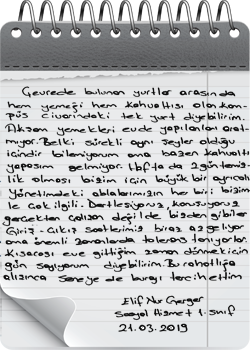 Çevrede bulunan yurtlar arasında
hem yemeği hem kahvaltısı olan kam-
püs civarındaki tek yurt diyebilirim.
Akşam yemekleri evde yapılanları arat-
mıyor. Belki sürekli aynı şeyler olduğu
içindir bilemiyorum ama bazen kahvaltı
yapasım gelmiyor. Hafta da 2 gün temiz-
lik olması bizim için büyük bir ayrıcalık
Yönetimdeki ablalarımızın her biri bizim-
le çok ilgili. Dertleşiyoruz, konuşuyoruz
gerçekten çalışan değil de bizden gibiler
Giriş-Çıkış saatlerimiz biraz az geliyor
ama önemli zamanlarda tolerans tanıyorlar.
Kısacası eve gittiğim zaman dönmek için
gün sayıyorum diyebilirim. Bu rahatlığa
alışınca seneye de burayı tercih ettim
Elif Nur Gerger
Sosyal Hizmet 1. Sınıf
21.03.2019